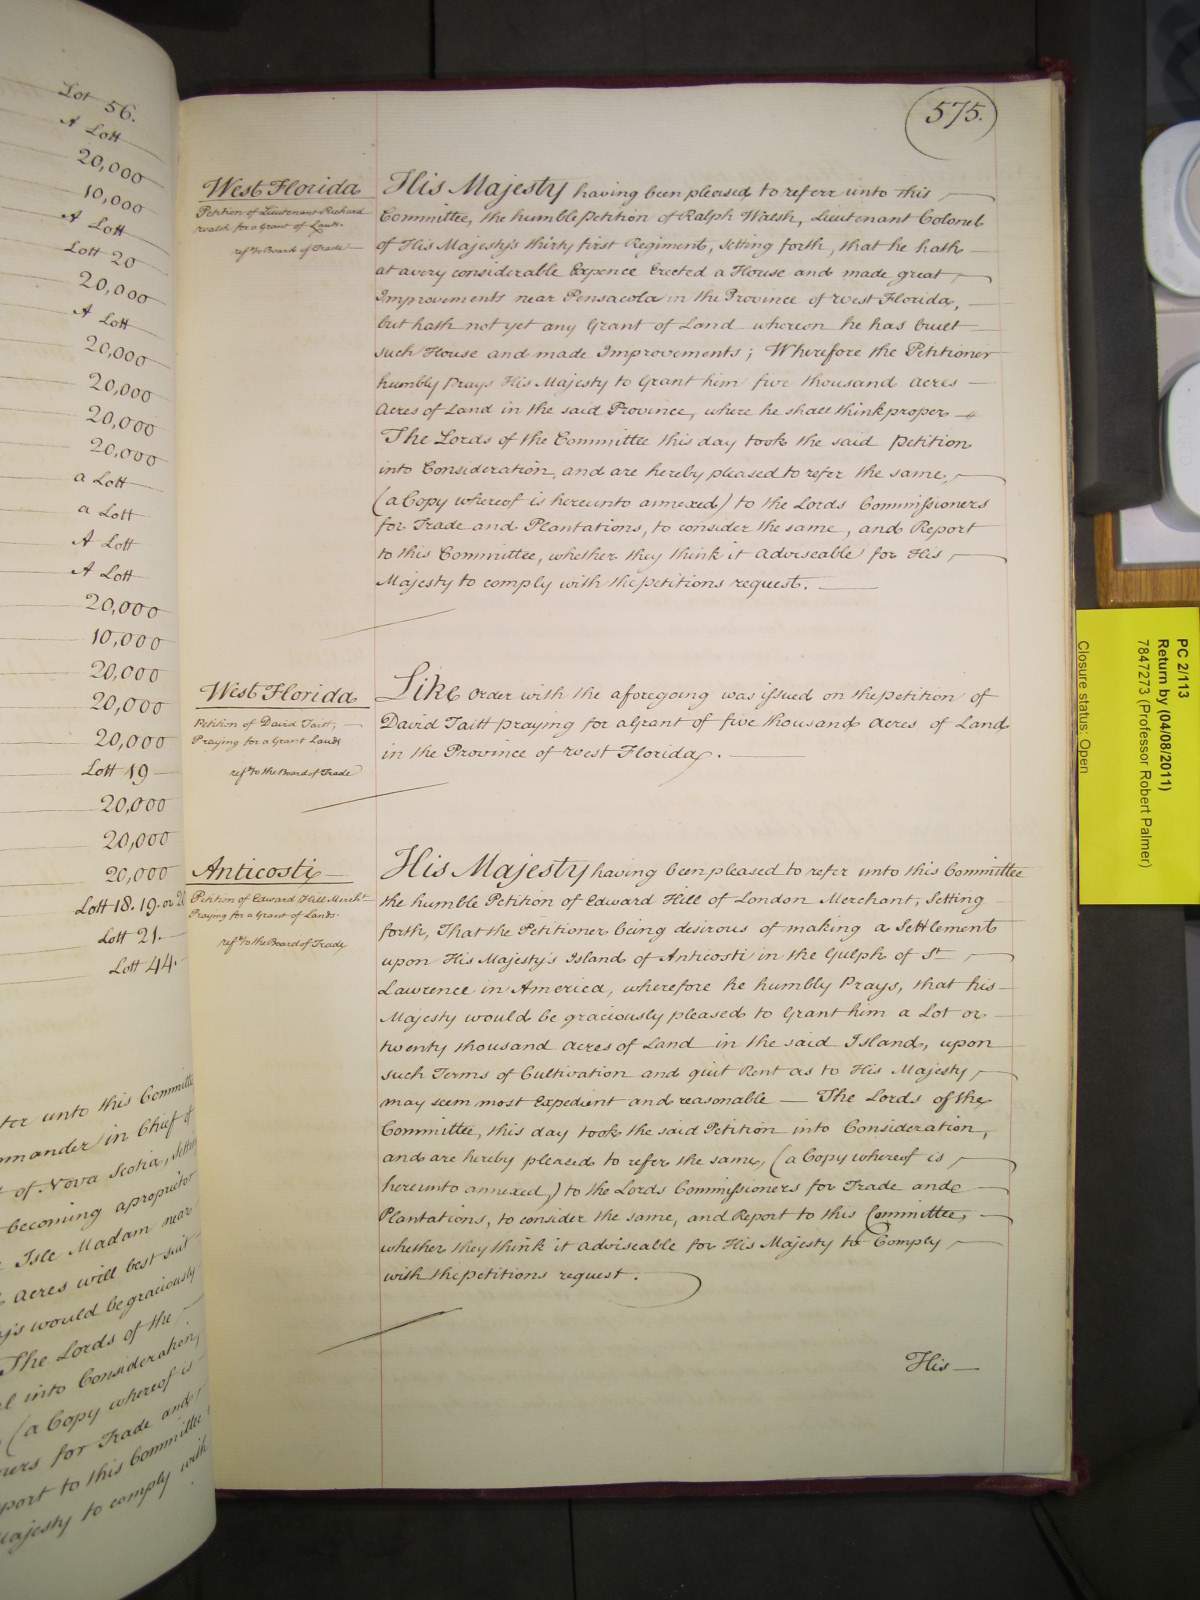 Lot 56.
A Lott
20,000
10,000
A Lott
Lott 20
20,000
A Lott
20,000
20,000
20,000
20,000
a Lott
a Lott
A Lott
A Lott
20,000
10,000
20,000
20,000
20,000
Lott 19
20,000
20,000
20,000
Lott 18. 19. or 20
Lott 21.
Lott 44.
unto this Committee
mmander in Chief of
of Nova Scotia, Setting
becoming a proprietor
Isle Madam near
Acres will best suit
would be graciously
The Lords of the
into Consideration,
(a Copy whereof is
for Trade and
to this Committee
to comply with
575.
West Florida
Petition of Lieutenant Richard
Walsh for a Grant of Lands.
refd to Board of Trade
His Majesty having been pleased to referr unto this
Committee, the humble Petition of Ralph Walsh, Lieutenant Colonel
of His Majesty's thirty first Regiment, setting forth, that he hath
at a very considerable Expence Erected a House and made great
Improvements near Pensacola in the Province of West Florida,
but hath not yet any Grant of Land whereon he has built
such House and made Improvements; Wherefore the Petitioner
humbly Prays His Majesty to Grant him five thousand Acres
Acres of Land in the said Province, where he shall think proper
The Lords of the Committee this day took the said Petition
into Consideration, and are hereby pleased to refer the same,
(a Copy whereof is hereunto annexed) to the Lords Commissioners
for Trade and Plantations, to consider the same, and Report
to this Committee, whether they think it Adviseable for His
Majesty to comply with the petitions request.
West Florida
Petition of David Taitt,
Praying for a Grant Lands
refd to the Board of Trade
Like Order with the aforegoing was issued on the petition of
David Taitt praying for a Grant of five thousand Acres of Land
in the Province of West Florida.
Anticosti
Petition of Edward Hill Mercht
Praying for a Grant of Lands.
refd to the Board of Trade
His Majesty having been pleased to refer unto this Committee
the humble Petition of Edward Hill of London Merchant, Setting
forth, That the Petitioner being desirous of making a Settlement
upon His Majesty's Island of Anticosti in the Gulph of St
Lawrence in America, wherefore he humbly Prays, that his
Majesty would be graciously pleased to Grant him a Lot or
twenty thousand Acres of Land in the said Island, upon
such Terms of Cultivation and quit Rent as to His Majesty
may seem most Expedient and reasonable — The Lords of the
Committee, this day took the said Petition into Consideration,
and are hereby pleased to refer the same, (a Copy whereof is
hereunto annexed,) to the Lords Commissioners for Trade and
Plantations, to consider the same, and Report to this Committee,
whether they think it adviseable for His Majesty to Comply
with the petitions request.
His
PC 2/113
Return by (04/08/2011)
7847273 (Professor Robert Palmer)
Closure status: Open